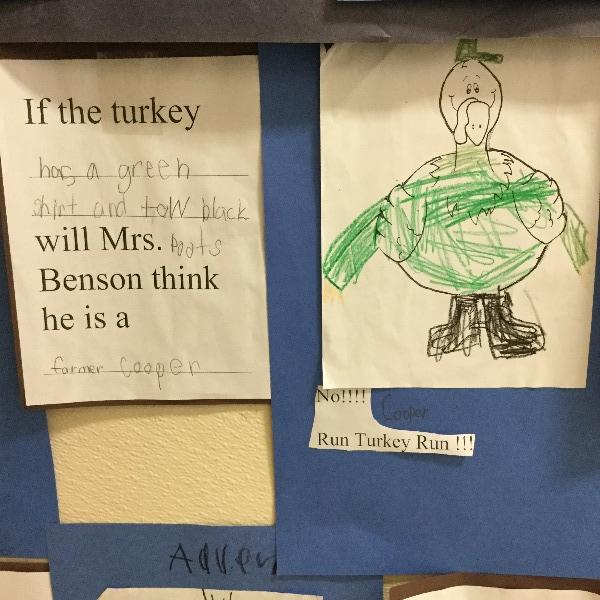 If the turkey
has a green
shirt and tow black
will Mrs. Boots
Benson think
he is a
farmer Cooper
No!!!!
Cooper
Run Turkey Run !!!